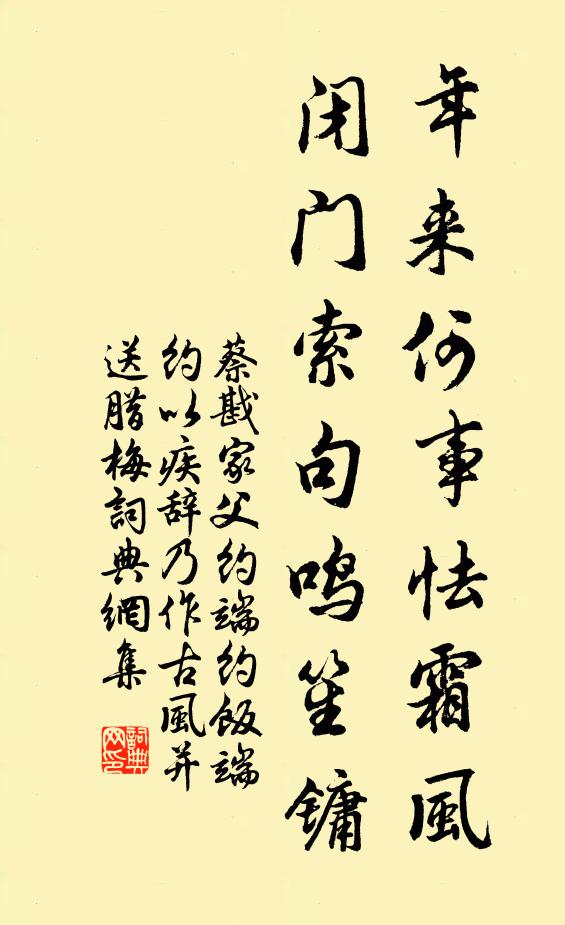 年来何事怯霜風
闭门索句鳴笙镛
蔡戡家父约端约飯端
约以疾辞乃作古風并
送腊梅詞典網集
詞典
网印